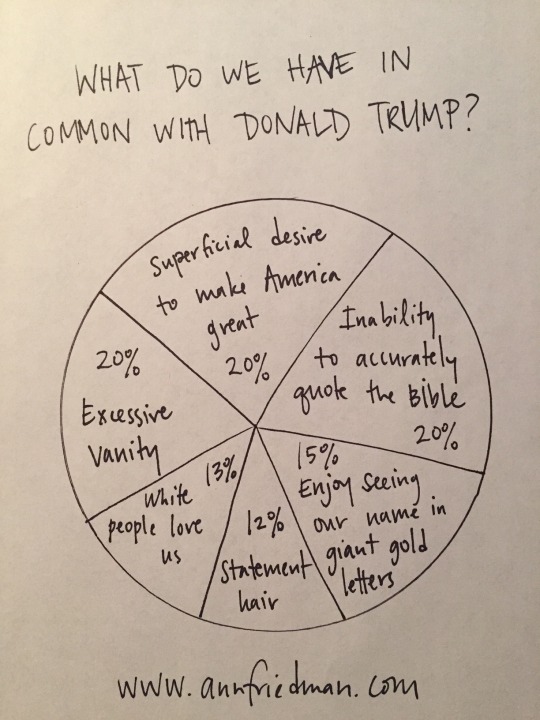 WHAT DO WE HAVE IN
COMMON WITH DONALD TRUMP?
Superficial desire
to make America
great
20%
Inability
to accurately
quote the Bible
20%
15%
Enjoy seeing
our name in
giant gold
letters
12%
Statement
hair
13%
White
people love
us
20%
Excessive
Vanity
www.annfriedman.com